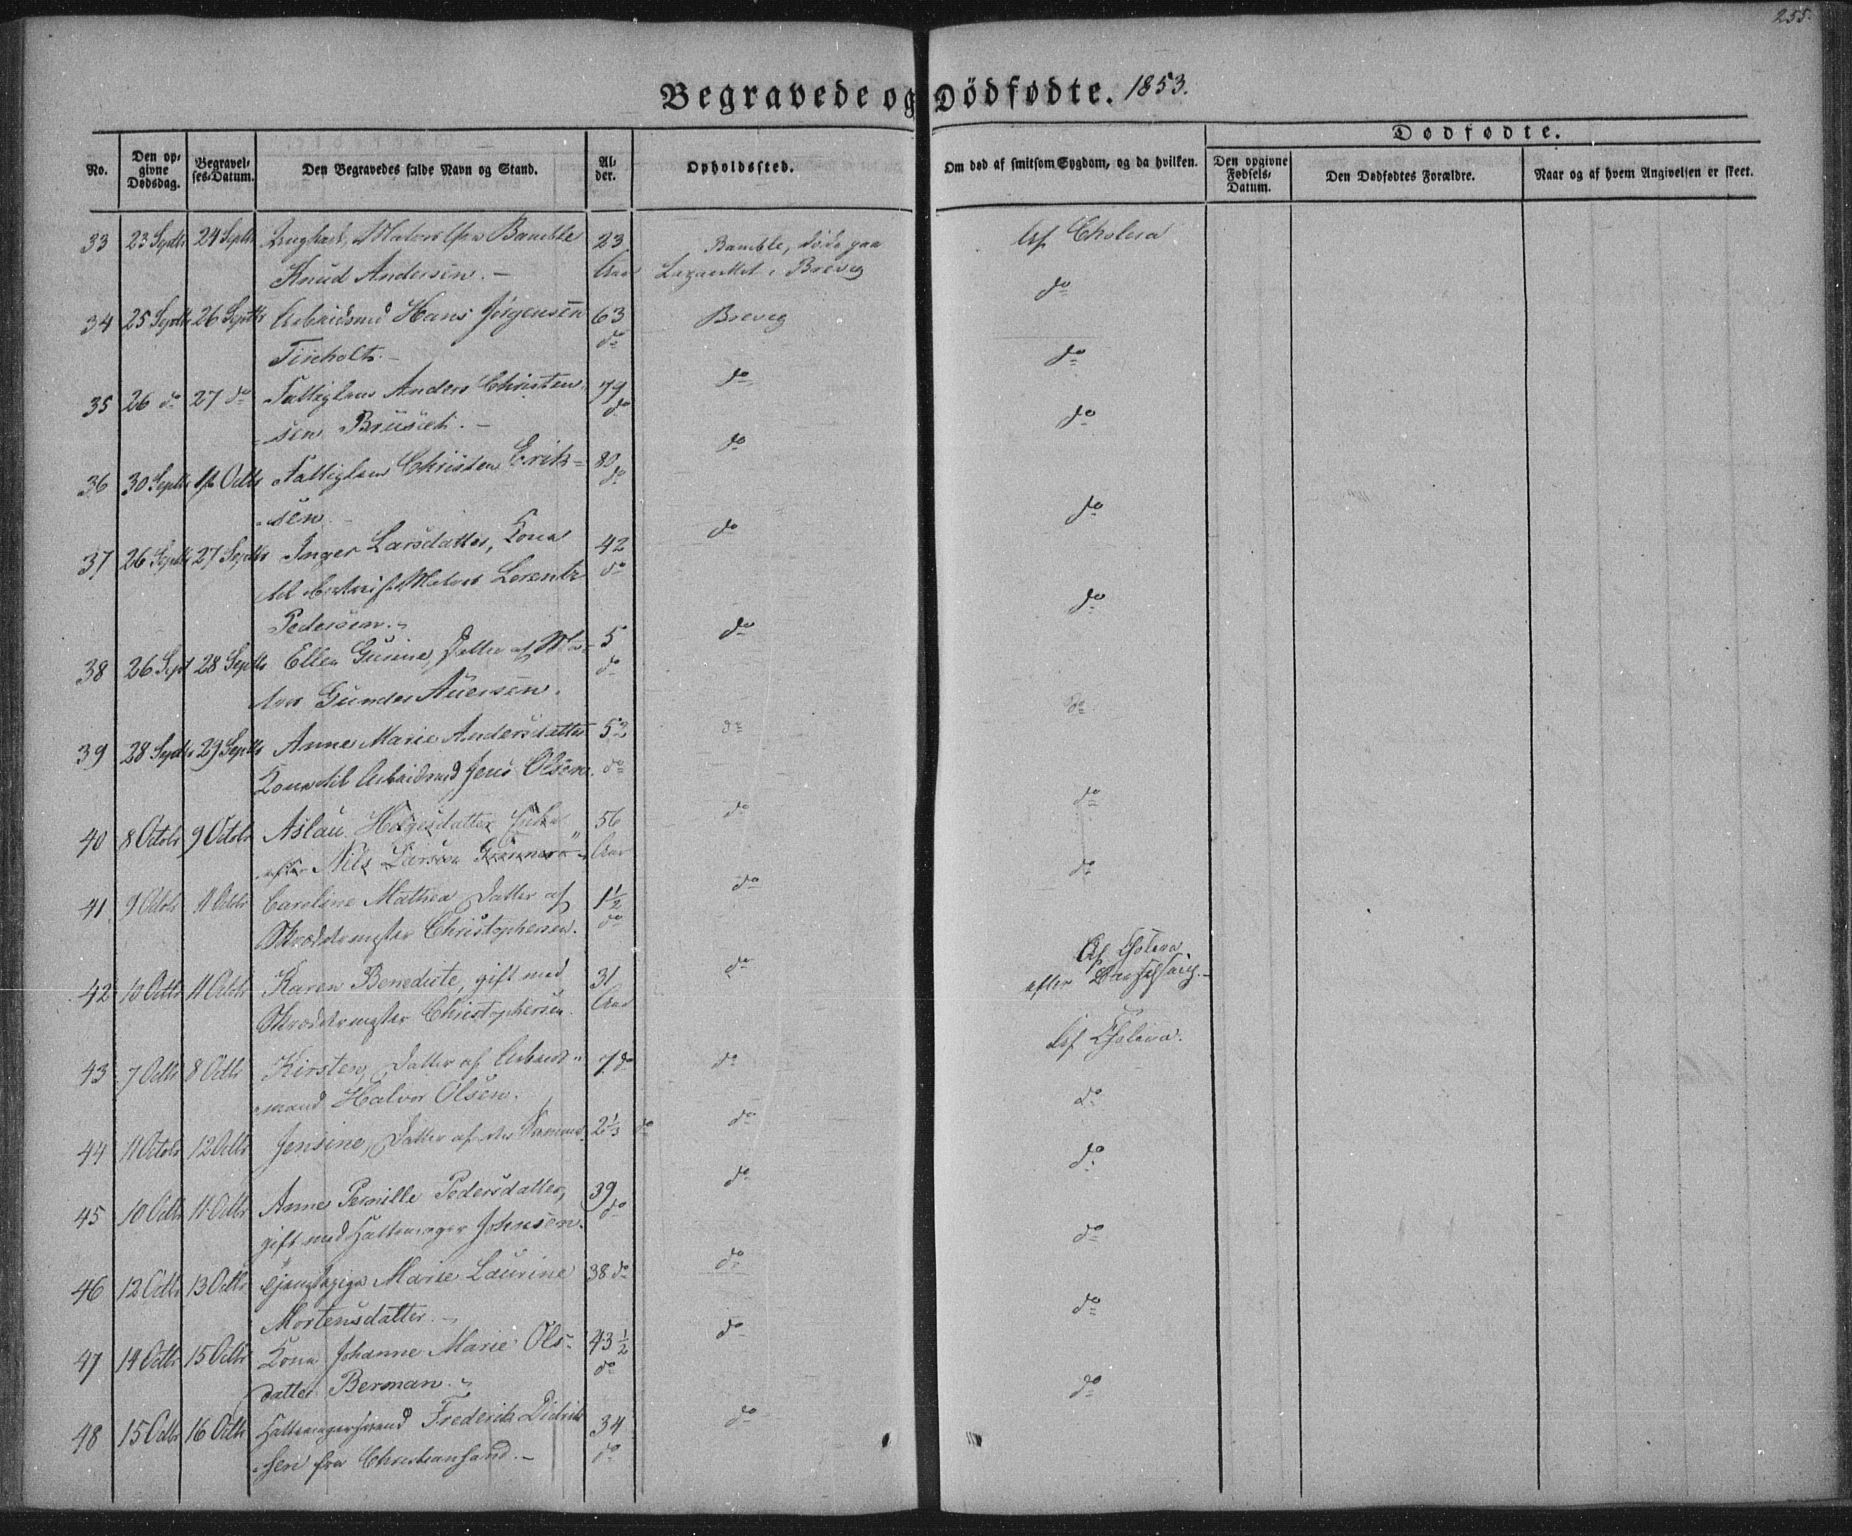 255.
Begravede og Dödfødte. 1853.
No.
Den op-
givne
Dødsdag.
Begravel-
ses-Datum.
Den Begravedes fulde Navn og Stand.
Al-
der.
Opholdssted.
Om død af smitsom Sygdom, og da hvilken.
Dødfødte.
Den opgivne
Fødsels-
Datum.
Den Dødfødtes Forældre.
Naar og af hvem Angivelsen er skeet.
33 23 Septbr 24 Septbr Matros Bamble 23 Bamble, døde paa Af Cholera
Knud Andersen. — Aar Lazarethet i Brevig
34 25 Septbr 26 Septbr Arbeidsmd Hans Jørgensen 63 Brevig do
Tinholt. — do
35 26 do 27 do Fattiglem Anders Christen- 79 do do
sen — do
36 30 Septbr 1ste Octbr Fattiglem Christen Erik- 80 do do
sen. — do
37 26 Septbr 27 Septbr Inger Larsdatter, Kone 42 do do
til Matros Lorentz do
Pedersen. —
38 26 Sept 28 Septbr Ellen Gurine, Datter af Ma- 5 do do
tros Gunder Auensen. do
39 28 Septbr 29 Septbr Anne Marie Andersdatter 53 do do
Kone til Arbeidsmd Jens Olsen. do
40 8 Octobr 9 Octobr Aslau Holgersdatter Enke 56 do do
efter Nils Larsen Aar
41 9 Octobr 11 Octbr Caroline Mathea Datter af 1½ do do
Skræddermester Christophersen. do
42 10 Octbr 11 Octbr Karen Benedicte, gift med 31 do Af Cholera
Skræddermester Christophersen. Aar efter
43 7 Octbr 8 Octbr Kirsten, Datter af Arbeids- 7 do do Af Cholera.
mand Halvor Olsen.
44 11 Octobr 12 Octbr Jensine, Datter af den Samme 2⅓ do do do
45 10 Octbr 11 Octbr Anne Pernille Pedersdatter, 39 do do
gift med Johnsen. do
46 12 Octbr 13 Octbr Marie Laurine 38 do do do
Mortensdatter. —
47 14 Octbr 15 Octbr Kone Johanne Marie Ols- 43½ do do
datter Berman. — do
48 15 Octbr 16 Octbr Frederik Didrik- 34 do do
sen fra Christiansand. — do